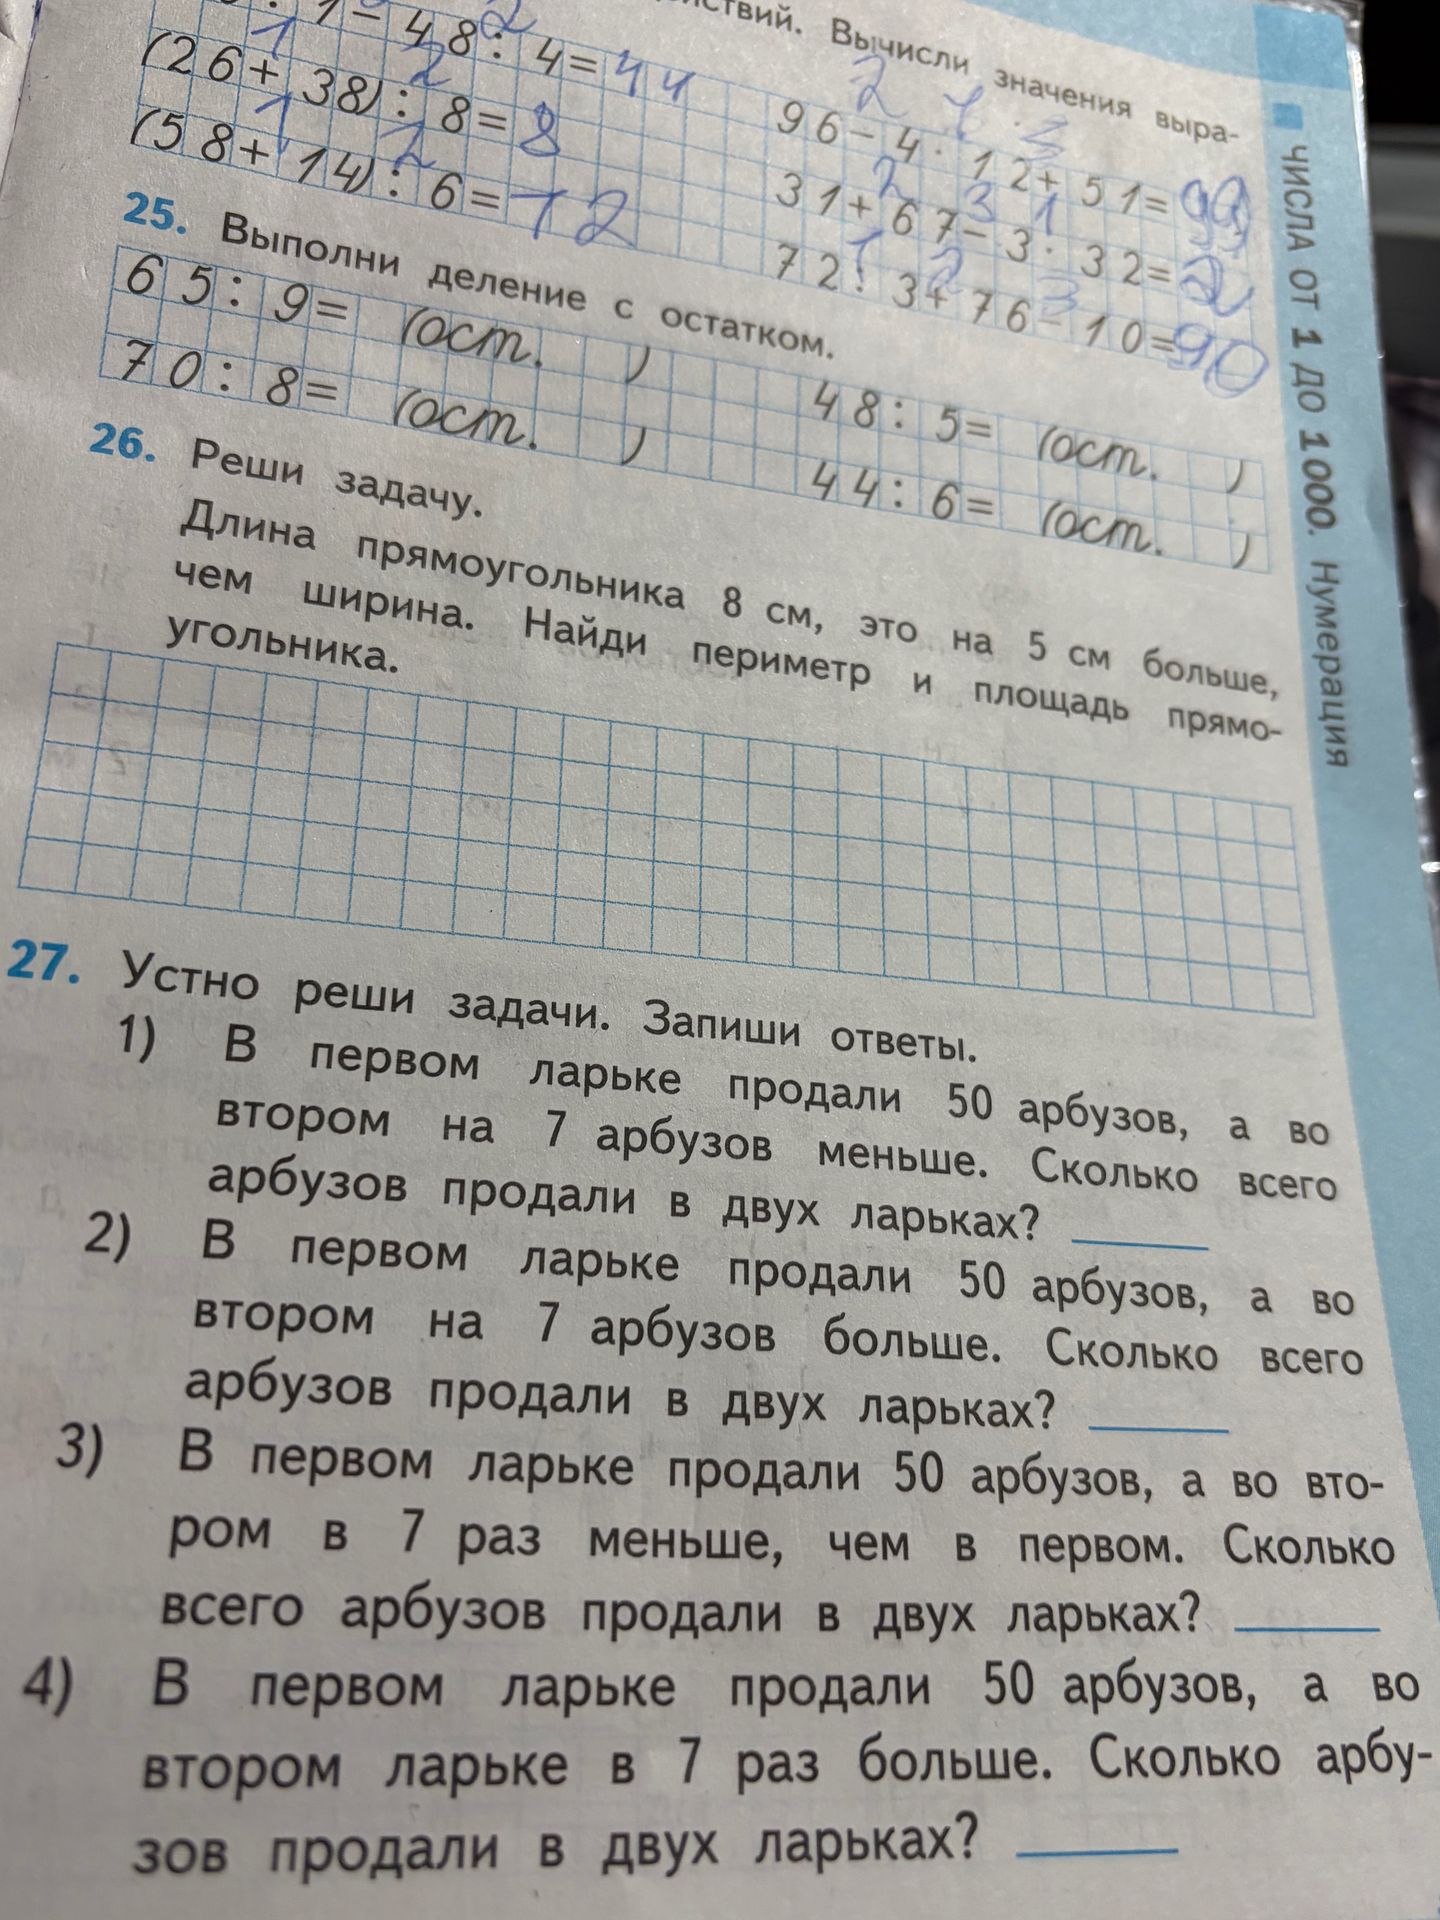 действий. Вычисли значения выра-
: 1 − 48 : 4 = 44
(26 + 38) : 8 = 8
(58 + 14) : 6 = 12
96 − 4 · 12 + 51 = 99
31 + 67 − 3 · 32 = 2
72 : 3 + 76 − 10 = 90
25. Выполни деление с остатком.
65 : 9 = (ост. )
70 : 8 = (ост. )
48 : 5 = (ост. )
44 : 6 = (ост. )
26. Реши задачу.
Длина прямоугольника 8 см, это на 5 см больше,
чем ширина. Найди периметр и площадь прямо-
угольника.
27. Устно реши задачи. Запиши ответы.
1) В первом ларьке продали 50 арбузов, а во
втором на 7 арбузов меньше. Сколько всего
арбузов продали в двух ларьках?
2) В первом ларьке продали 50 арбузов, а во
втором на 7 арбузов больше. Сколько всего
арбузов продали в двух ларьках?
3) В первом ларьке продали 50 арбузов, а во вто-
ром в 7 раз меньше, чем в первом. Сколько
всего арбузов продали в двух ларьках?
4) В первом ларьке продали 50 арбузов, а во
втором ларьке в 7 раз больше. Сколько арбу-
зов продали в двух ларьках?
ЧИСЛА ОТ 1 ДО 1000. Нумерация